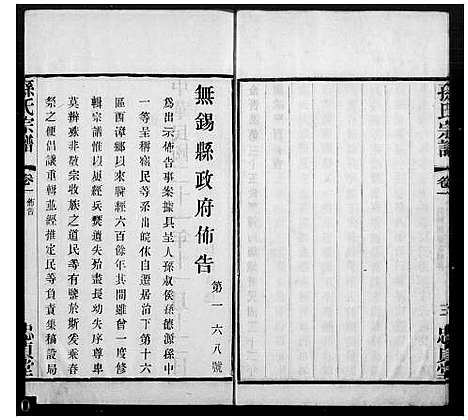 無錫縣政府佈告
第一六八號
為出示佈告事案據具呈人孫叔侯孫德源孫中
一等呈稱竊民等世出皖休自遷居治下第十六
區西漳鄉以來歷經六百餘年其間雖曾一度修
輯宗譜惟以屢經兵燹遺失殆盡長幼失序尊卑
莫辨殊非敬宗收族之道民等有鑒於斯爰乘春
祭之便倡議重輯並經推定民等負責集稿設局
孫氏宗譜
卷一
佈告
忠貞堂
孫氏宗譜
卷一
三
忠貞堂